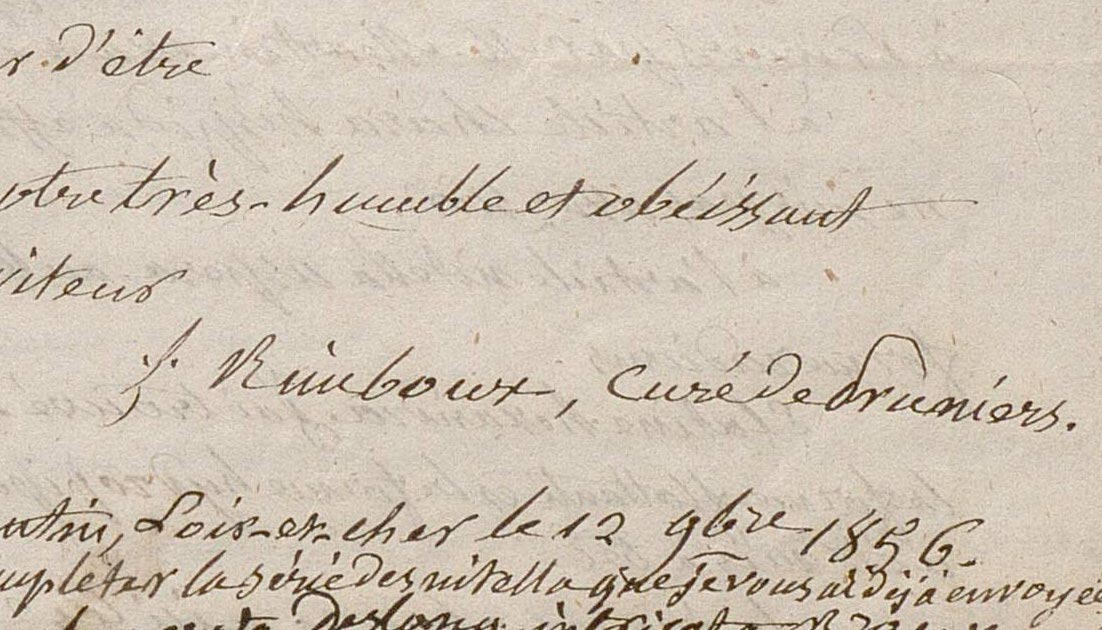 r d'être
otre très-humble et obéissant
viteur
Rimboux, Curé de Pruniers.
Loir-et-cher le 12 9bre 1856.
mpléter la série des nitella que je vous ai déjà envoyée
intricata